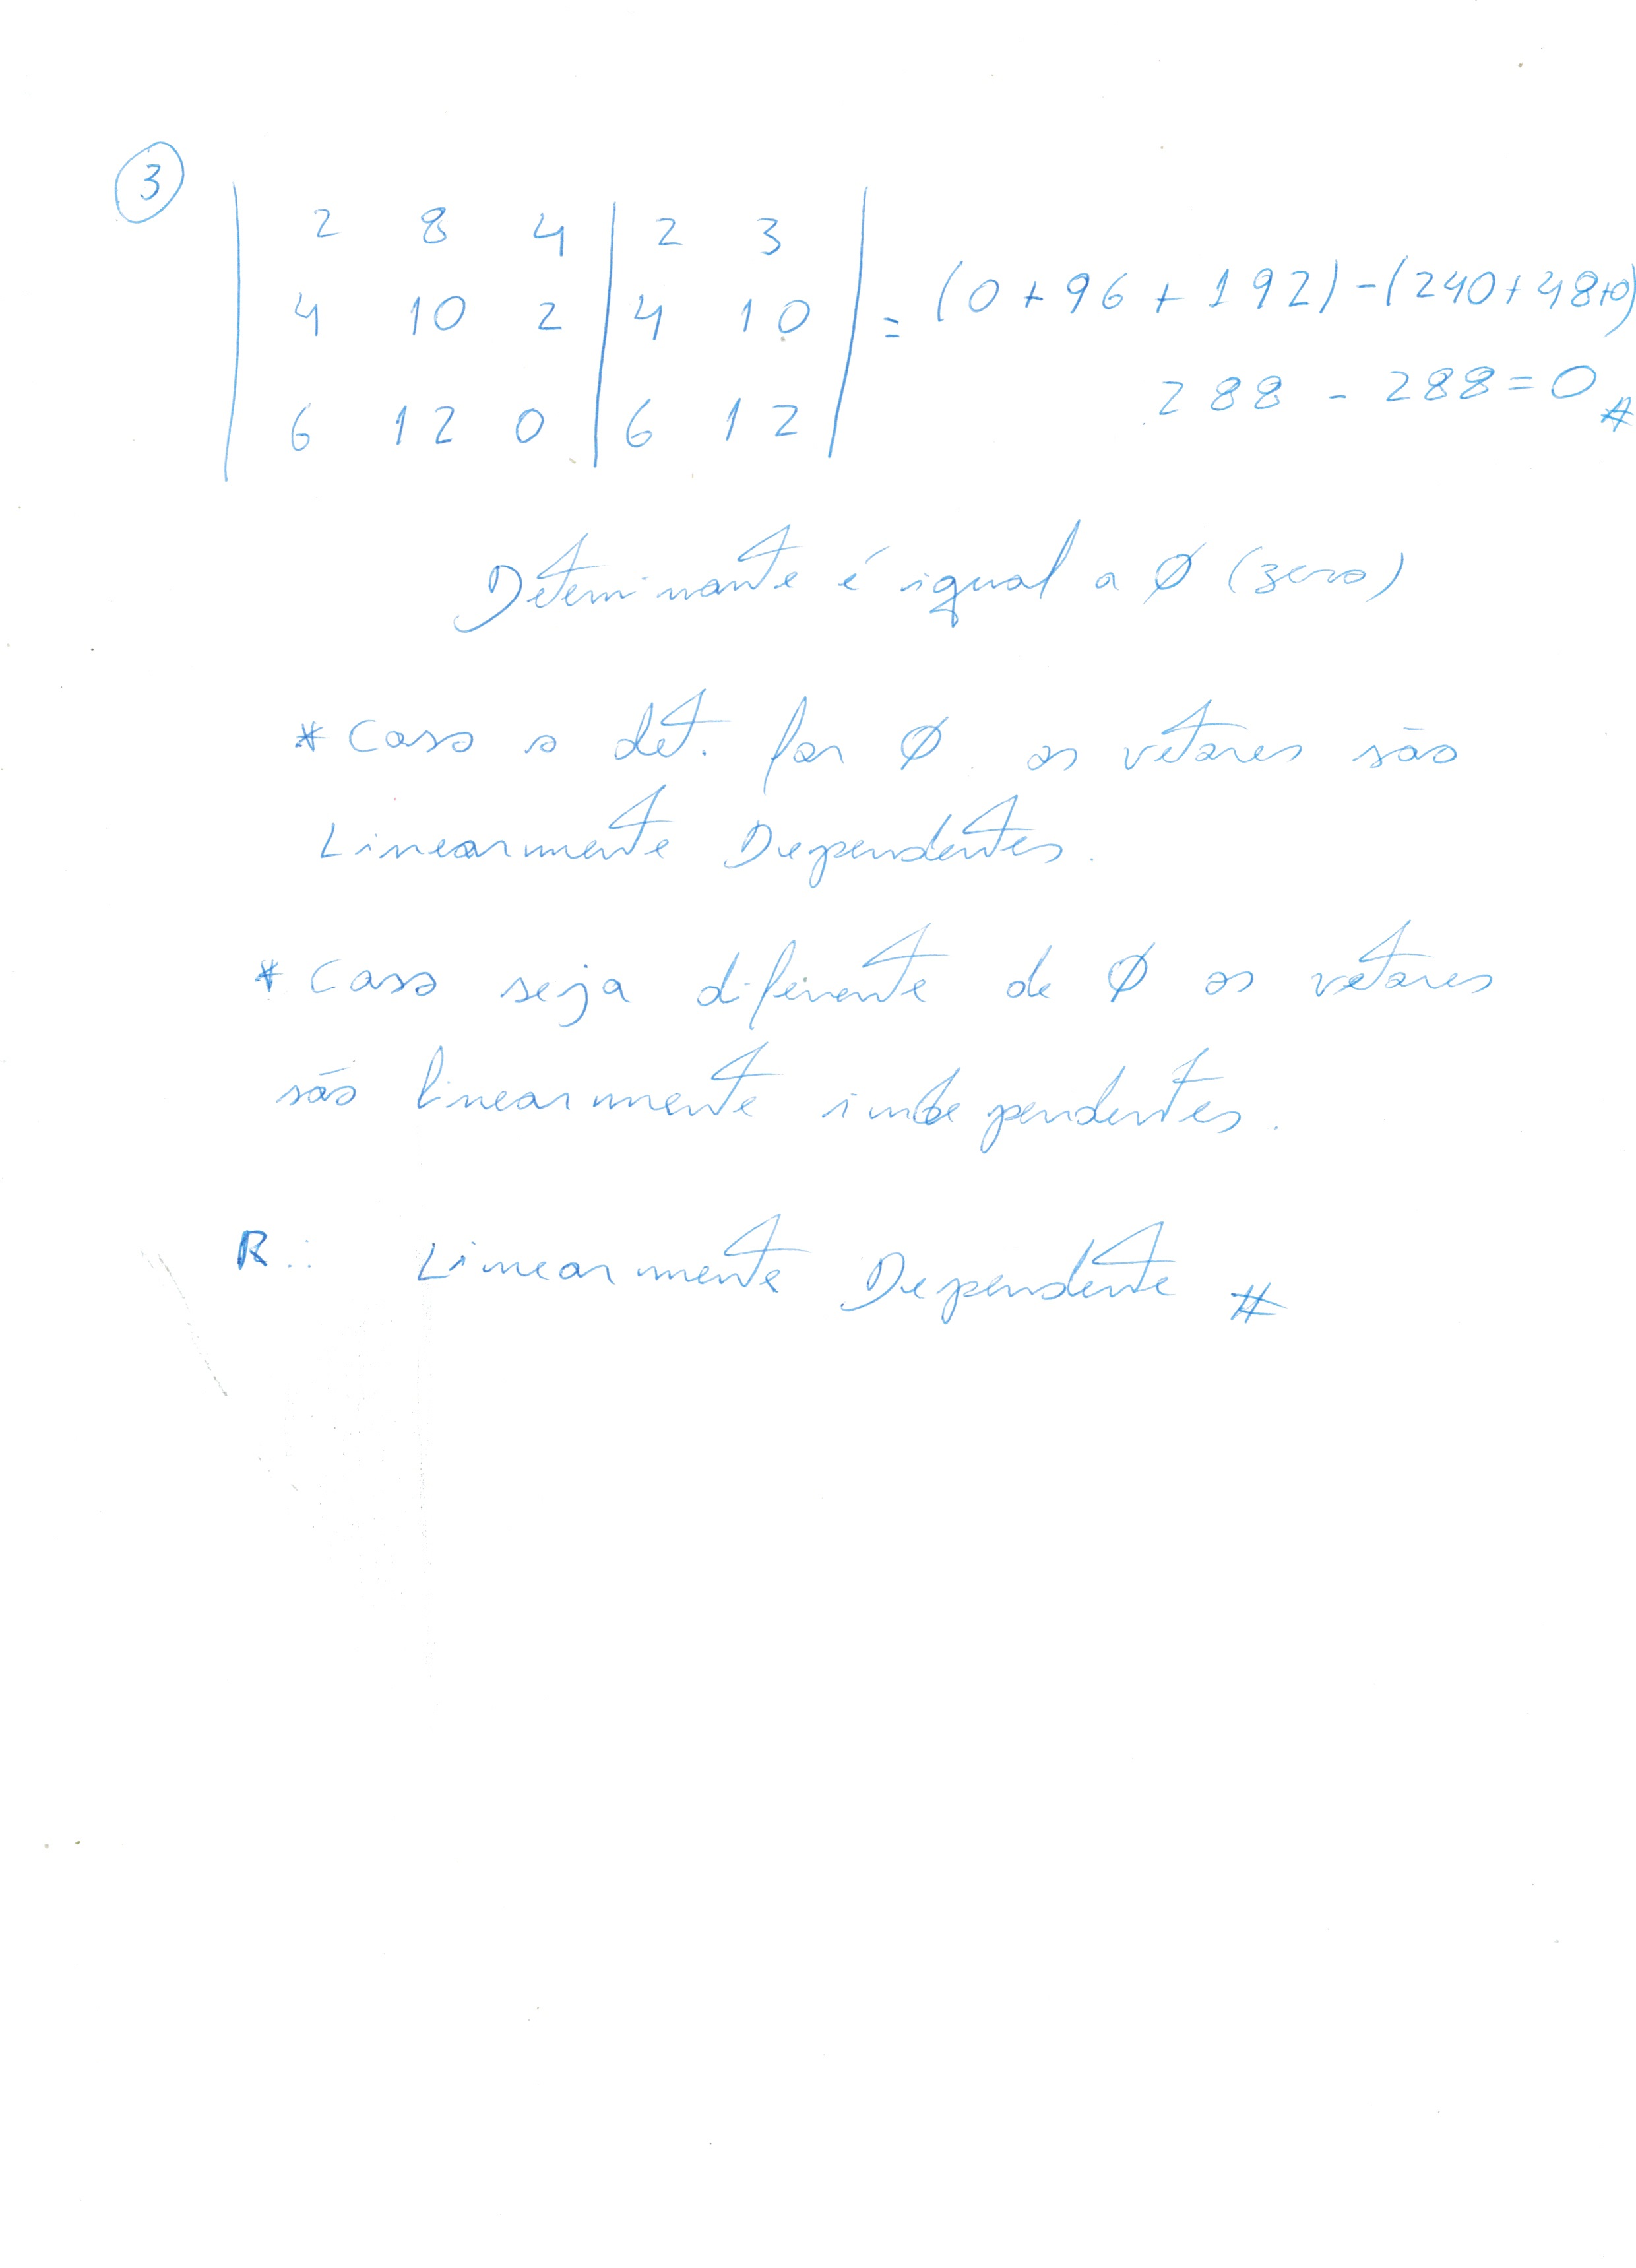 3
2 8 4 | 2 3
4 10 2 | 4 10 | = (0 + 96 + 192) - (240 + 48 + 0)
6 12 0 | 6 12
288 - 288 = 0 #
Determinante é igual a Ø (zero)
* Caso o det. for Ø os vetores são
Linearmente Dependentes.
* Caso seja diferente de Ø os vetores
são linearmente independentes.
R.: Linearmente Dependente #